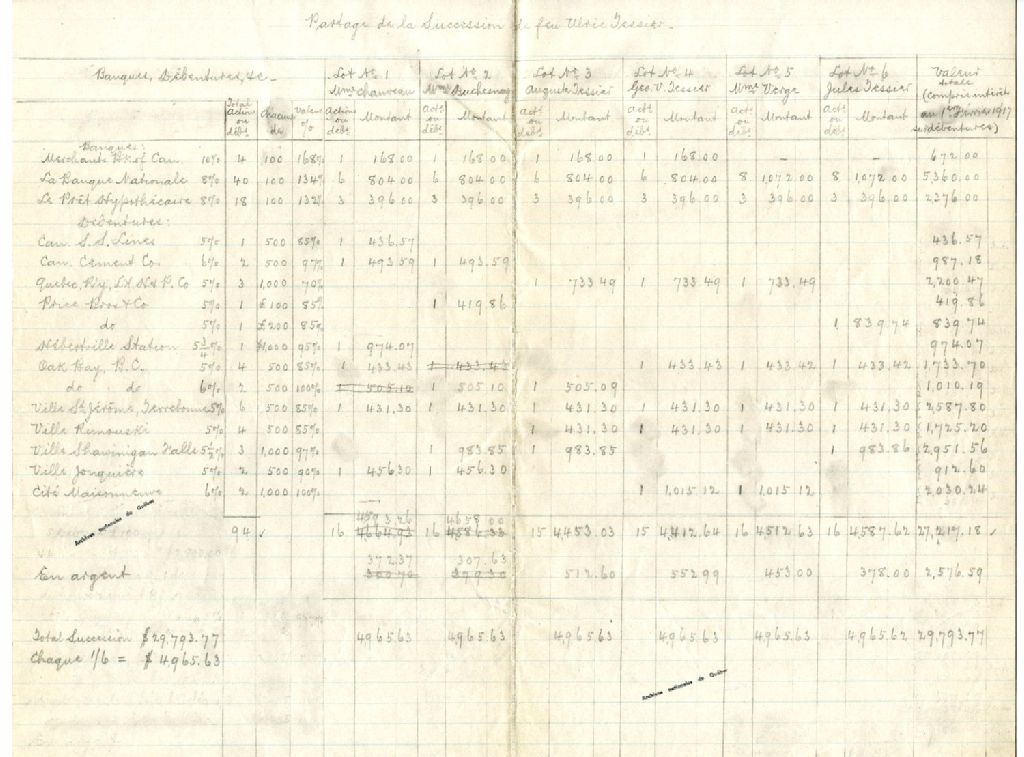 Partage de la Succession de feu Ulric Tessier.
Banques, Débentures, &c. Lot No. 1 Lot No. 2 Lot No. 3 Lot No. 4 Lot No. 5 Lot No. 6 Valeur
Mme Chauveau Mme Duchesnay Auguste Tessier Geo. V. Tessier Mme Verge Jules Tessier totale
Total actions ou débts. chacune de Valeur à % Actions ou débts. Montant acts ou débts Montant acts ou débts Montant acts ou débts. Montant acts ou débts. Montant acts ou débts Montant (Compris intérêt au 1er Février 1917 débentures)
Banques:
Merchants Bk. of Can. 10% 4 100 168% 1 168.00 1 168.00 1 168.00 1 168.00 - - 672.00
La Banque Nationale 8% 40 100 134% 6 804.00 6 804.00 6 804.00 6 804.00 8 1,072.00 8 1,072.00 5,360.00
Le Prêt Hypothécaire 8% 18 100 132% 3 396.00 3 396.00 3 396.00 3 396.00 3 396.00 3 396.00 2,376.00
Débentures:
Can. S. S. Lines 5% 1 500 85% 1 436.57 436.57
Can. Cement Co. 6% 2 500 97% 1 493.59 1 493.59 987.18
Quebec, Ry., Lt. Ht & P. Co 5% 3 1,000 70% 1 733.49 1 733.49 1 733.49 2,200.47
Price Bros & Co 5% 1 £100 85% 1 419.86 419.86
do 5% 1 £200 85% 1 839.74 839.74
Hébertville Station 5 3/4% 1 $1,000 95% 1 974.07 974.07
Oak Bay, B.C. 5% 4 500 85% 1 433.43 1 433.43 1 433.43 1 433.42 1 433.42 1,733.70
do do 6% 2 500 100% 1 505.10 1 505.10 1 505.09 1,010.19
Ville St. Jérôme, Terrebonne 5% 6 500 85% 1 431.30 1 431.30 1 431.30 1 431.30 1 431.30 1 431.30 2,587.80
Ville Rimouski 5% 4 500 85% 1 431.30 1 431.30 1 431.30 1 431.30 1,725.20
Ville Shawinigan Falls 5½% 3 1,000 97% 1 983.85 1 983.85 1 983.86 2,951.56
Ville Jonquière 5% 2 500 90% 1 456.30 1 456.30 912.60
Cité Maisonneuve 6% 2 1,000 100% 1 1,015.12 1 1,015.12 2,030.24
4593.26 4658.00
94 ✓ 16 4664.93 16 4586.33 15 4,453.03 15 4,412.64 16 4512.63 16 4587.62 27,217.18 ✓
Archives nationales du Québec
372.37 307.63
En argent 300.70 379.30 512.60 552.99 453.00 378.00 2,576.59
Total Succession $29,793.77 4965.63 4,965.63 4,965.63 4,965.63 4,965.63 4,965.62 29,793.77
Chaque 1/6 = $4,965.63
Archives nationales du Québec